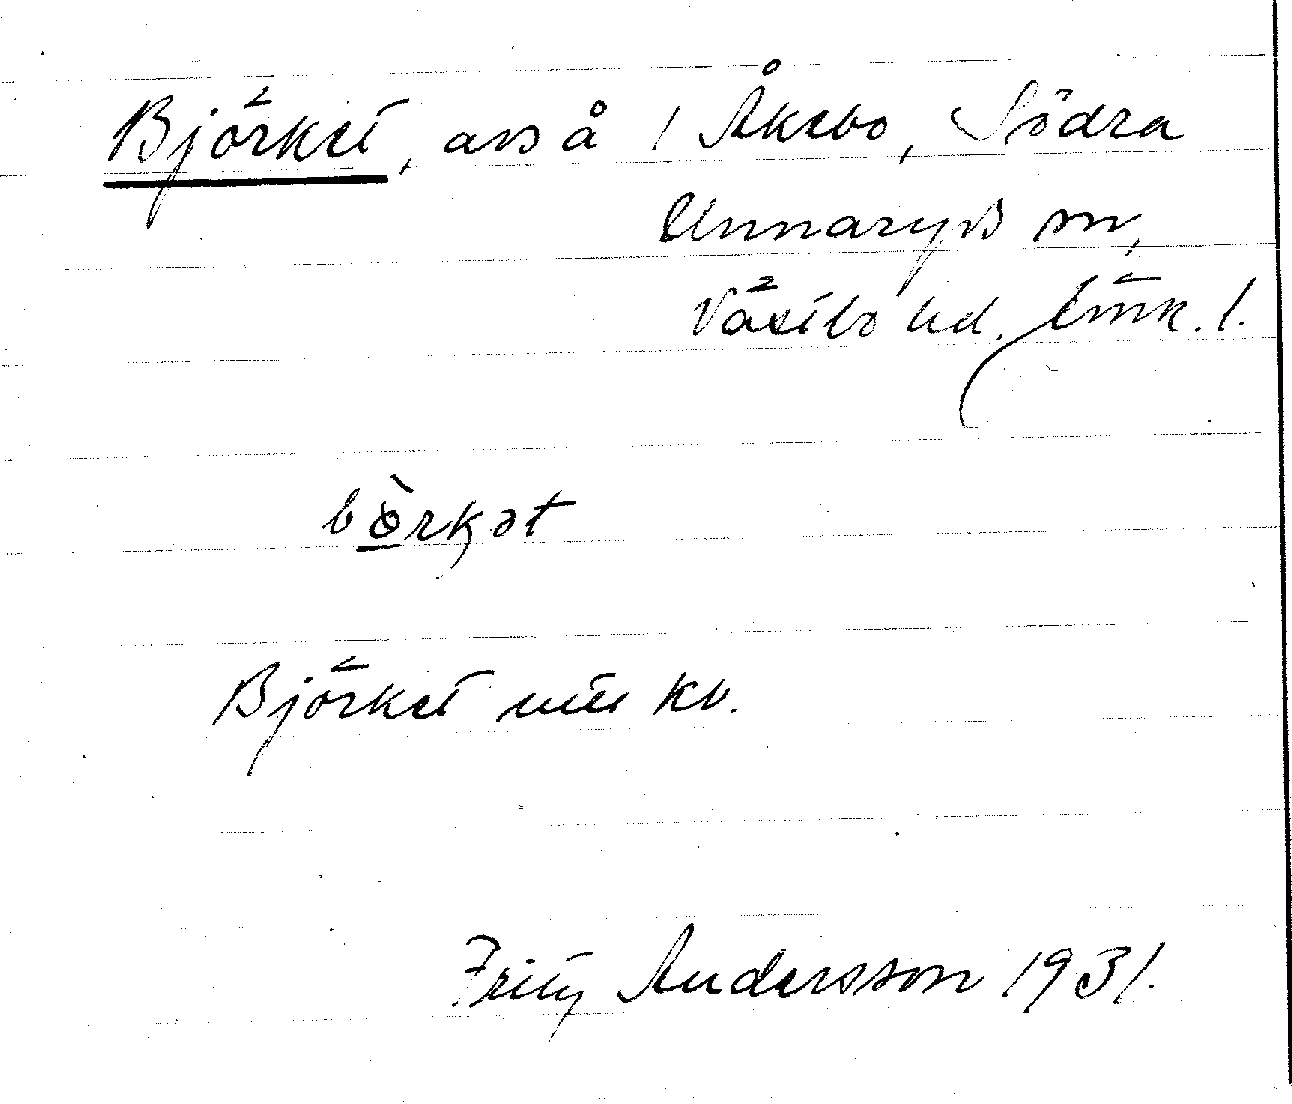 Björket, avs å 1 Åkebo, Södra
Unnaryds sn,
Västbo hd. Jönk. l.
bö̀rkət
Björket utu kv.
Fritz Andersson 1931.